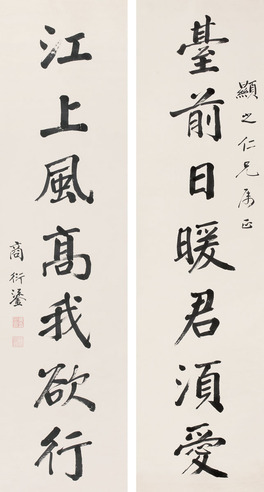 臺前日暖君須愛
顯之仁兄屬正
江上風高我欲行
商衍鎏